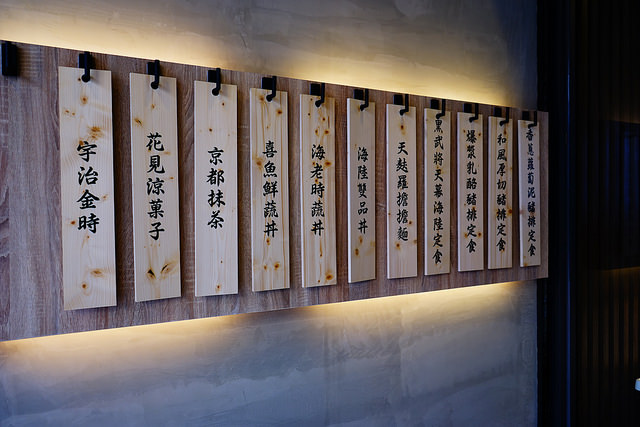 宇治金時
花見涼菓子
京都抹茶
喜魚鮮蔬丼
海老時蔬丼
海陸雙品丼
天麩羅擔擔麵
黑武將天幕海陸定食
爆漿乳酪豬排定食
和風厚切豬排定食
蘿蔔泥豬排定食